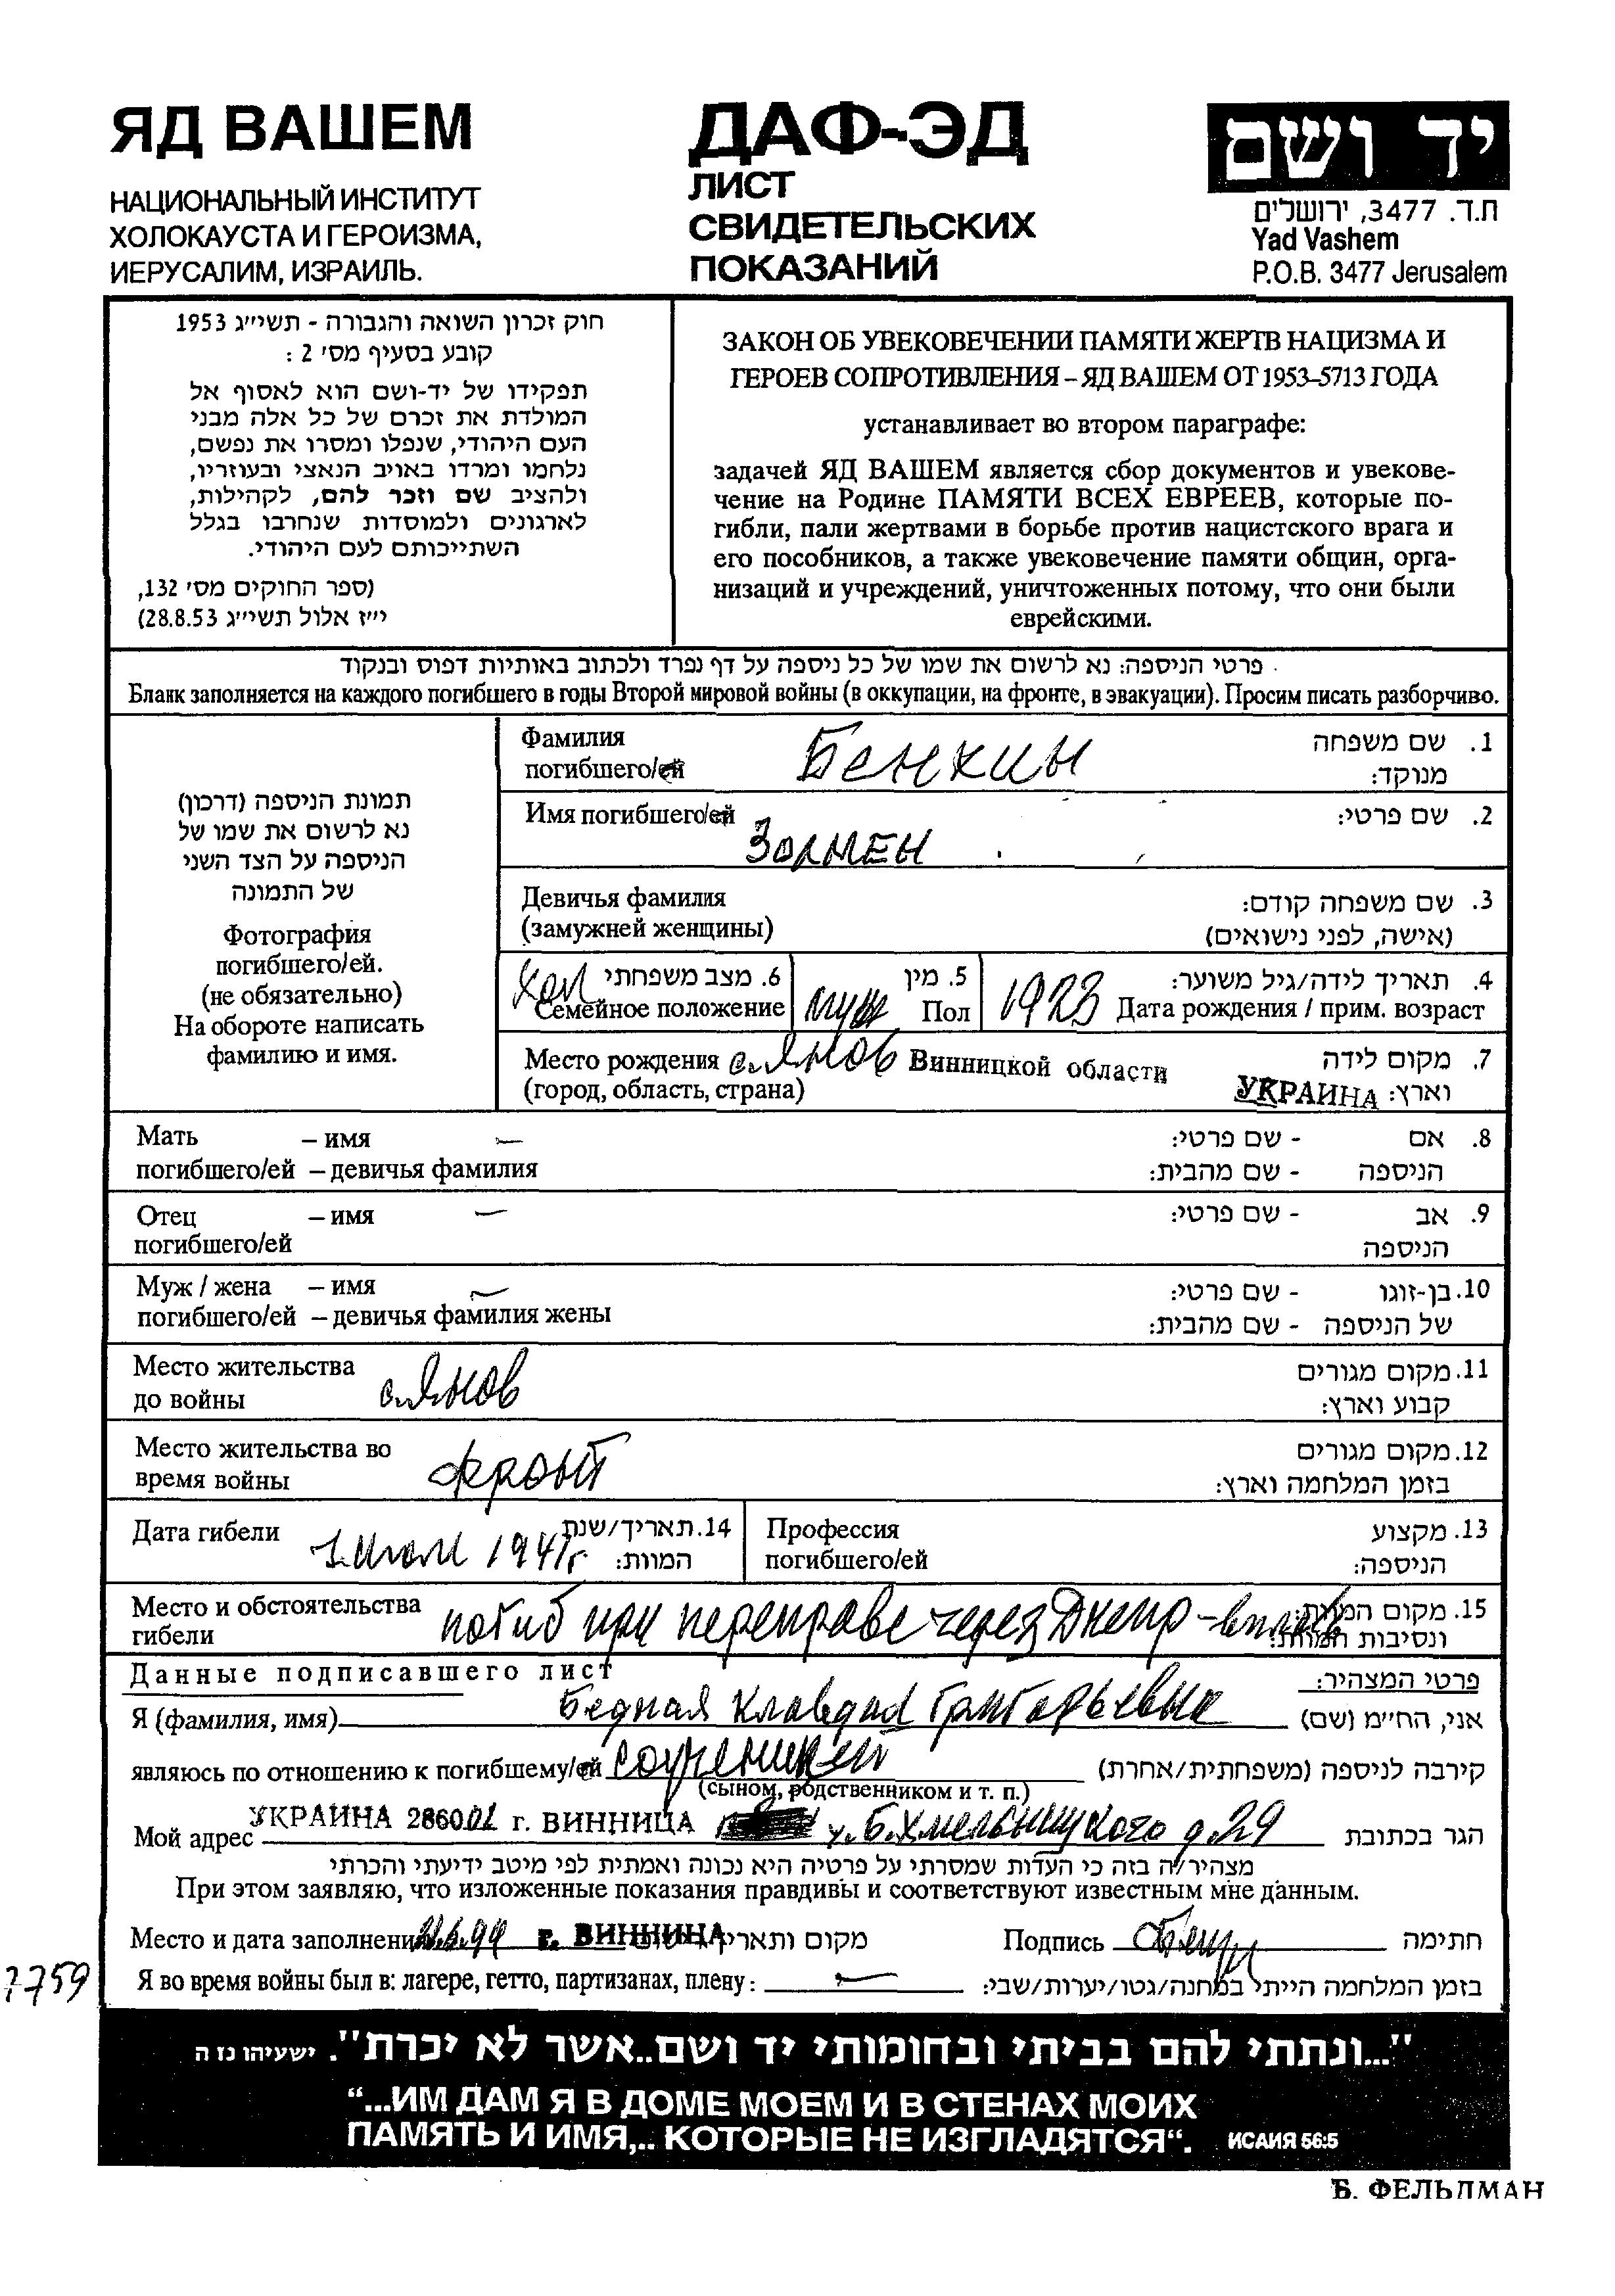 ЯД ВАШЕМ
НАЦИОНАЛЬНЫЙ ИНСТИТУТ
ХОЛОКАУСТА И ГЕРОИЗМА,
ИЕРУСАЛИМ, ИЗРАИЛЬ.
ДАФ-ЭД
ЛИСТ
СВИДЕТЕЛЬСКИХ
ПОКАЗАНИЙ
יד ושם
ת.ד. 3477, ירושלים
Yad Vashem
P.O.B. 3477 Jerusalem
חוק זכרון השואה והגבורה - תשי״ג 1953
קובע בסעיף מס׳ 2 :
תפקידו של יד-ושם הוא לאסוף אל
המולדת את זכרם של כל אלה מבני
העם היהודי, שנפלו ומסרו את נפשם,
נלחמו ומרדו באויב הנאצי ובעוזריו,
ולהציב שם וזכר להם, לקהילות,
לארגונים ולמוסדות שנחרבו בגלל
השתייכותם לעם היהודי.
(ספר החוקים מס׳ 132,
י״ז אלול תשי״ג 28.8.53)
ЗАКОН ОБ УВЕКОВЕЧЕНИИ ПАМЯТИ ЖЕРТВ НАЦИЗМА И
ГЕРОЕВ СОПРОТИВЛЕНИЯ – ЯД ВАШЕМ ОТ 1953–5713 ГОДА
устанавливает во втором параграфе:
задачей ЯД ВАШЕМ является сбор документов и увекове-
чение на Родине ПАМЯТИ ВСЕХ ЕВРЕЕВ, которые по-
гибли, пали жертвами в борьбе против нацистского врага и
его пособников, а также увековечение памяти общин, орга-
низаций и учреждений, уничтоженных потому, что они были
еврейскими.
פרטי הניספה: נא לרשום את שמו של כל ניספה על דף נפרד ולכתוב באותיות דפוס ובנקוד
Бланк заполняется на каждого погибшего в годы Второй мировой войны (в оккупации, на фронте, в эвакуации). Просим писать разборчиво.
תמונת הניספה (דרכון)
נא לרשום את שמו של
הניספה על הצד השני
של התמונה
Фотография
погибшего/ей.
(не обязательно)
На обороте написать
фамилию и имя.
Фамилия Бенкин 1. שם משפחה
погибшего/ей מנוקד:
Имя погибшего/ей 2. שם פרטי:
Золмен
Девичья фамилия 3. שם משפחה קודם:
(замужней женщины) (אישה, לפני נישואים)
хол 6. מצב משפחתי 5. מין 4. תאריך לידה/גיל משוער:
Семейное положение муж Пол 1923 Дата рождения / прим. возраст
Место рождения с. Янов Винницкой области 7. מקום לידה
(город, область, страна) УКРАИНА וארץ:
Мать – имя — 8. אם - שם פרטי:
погибшего/ей – девичья фамилия הניספה - שם מהבית:
Отец – имя — 9. אב - שם פרטי:
погибшего/ей הניספה
Муж / жена – имя — 10. בן-זוגו - שם פרטי:
погибшего/ей – девичья фамилия жены של הניספה - שם מהבית:
Место жительства с. Янов 11. מקום מגורים
до войны קבוע וארץ:
Место жительства во фронт 12. מקום מגורים
время войны בזמן המלחמה וארץ:
Дата гибели 14. תאריך/שנת Профессия 13. מקצוע
1941г המוות: погибшего/ей הניספה:
Место и обстоятельства погиб при переправе через Днепр – вплавь 15. מקום המוות:
гибели ונסיבות המוות:
Данные подписавшего лист פרטי המצהיר:
Я (фамилия, имя) Бедная Клавдия Григорьевна אני, הח״מ (שם)
являюсь по отношению к погибшему/ей קירבה לניספה (משפחתית/אחרת)
(сыном, родственником и т. п.)
Мой адрес УКРАИНА 286001 г. ВИННИЦА у. Б. Хмельницкого д. 29 הגר בכתובת
מצהיר/ה בזה כי העדות שמסרתי על פרטיה היא נכונה ואמתית לפי מיטב ידיעתי והכרתי
При этом заявляю, что изложенные показания правдивы и соответствуют известным мне данным.
Место и дата заполнения г. ВИННИЦА מקום ותאריך Подпись חתימה
Я во время войны был в: лагере, гетто, партизанах, плену: — בזמן המלחמה הייתי במחנה/גטו/יערות/שבי:
"...ונתתי להם בביתי ובחומותי יד ושם..אשר לא יכרת". ישעיהו נז ה
“...ИМ ДАМ Я В ДОМЕ МОЕМ И В СТЕНАХ МОИХ
ПАМЯТЬ И ИМЯ,.. КОТОРЫЕ НЕ ИЗГЛАДЯТСЯ“. ИСАИЯ 56:5
Б. ФЕЛЬДМАН